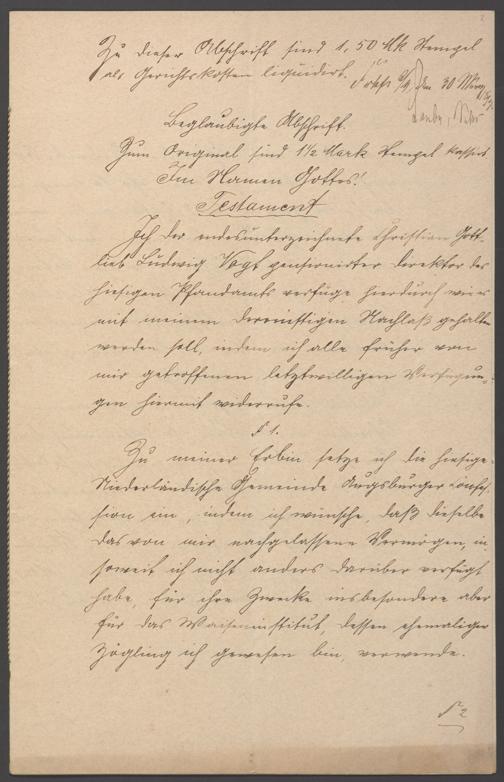 Zu dieser Abschrift sind 1,50 Mk Stempel
als Gerichtskosten liquidirt.
den 30 März
Beglaubigte Abschrift.
Zum Original sind 1½ Mark Stempel kassirt
Im Namen Gottes!
Testament
Ich der endesunterzeichnete Christian Gott-
lieb Ludwig Vogt pensionirter Direktor des
hiesigen Pfandamts verfüge hierdurch wie es
mit meinem dereinstigen Nachlaß gehalten
werden soll, indem ich alle früher von
mir getroffenen letztwilligen Verfügun-
gen hiermit widerrufe.
§ 1.
Zu meiner Erbin setze ich die hiesige
Niederländische Gemeinde Augsburger Confes-
sion ein, indem ich wünsche, daß dieselbe
das von mir nachgelassene Vermögen, in-
soweit ich nicht anders darüber verfügt
habe, für ihre Zwecke insbesondere aber
für das Waiseninstitut, dessen ehemaliger
Zögling ich gewesen bin, verwende.
§ 2